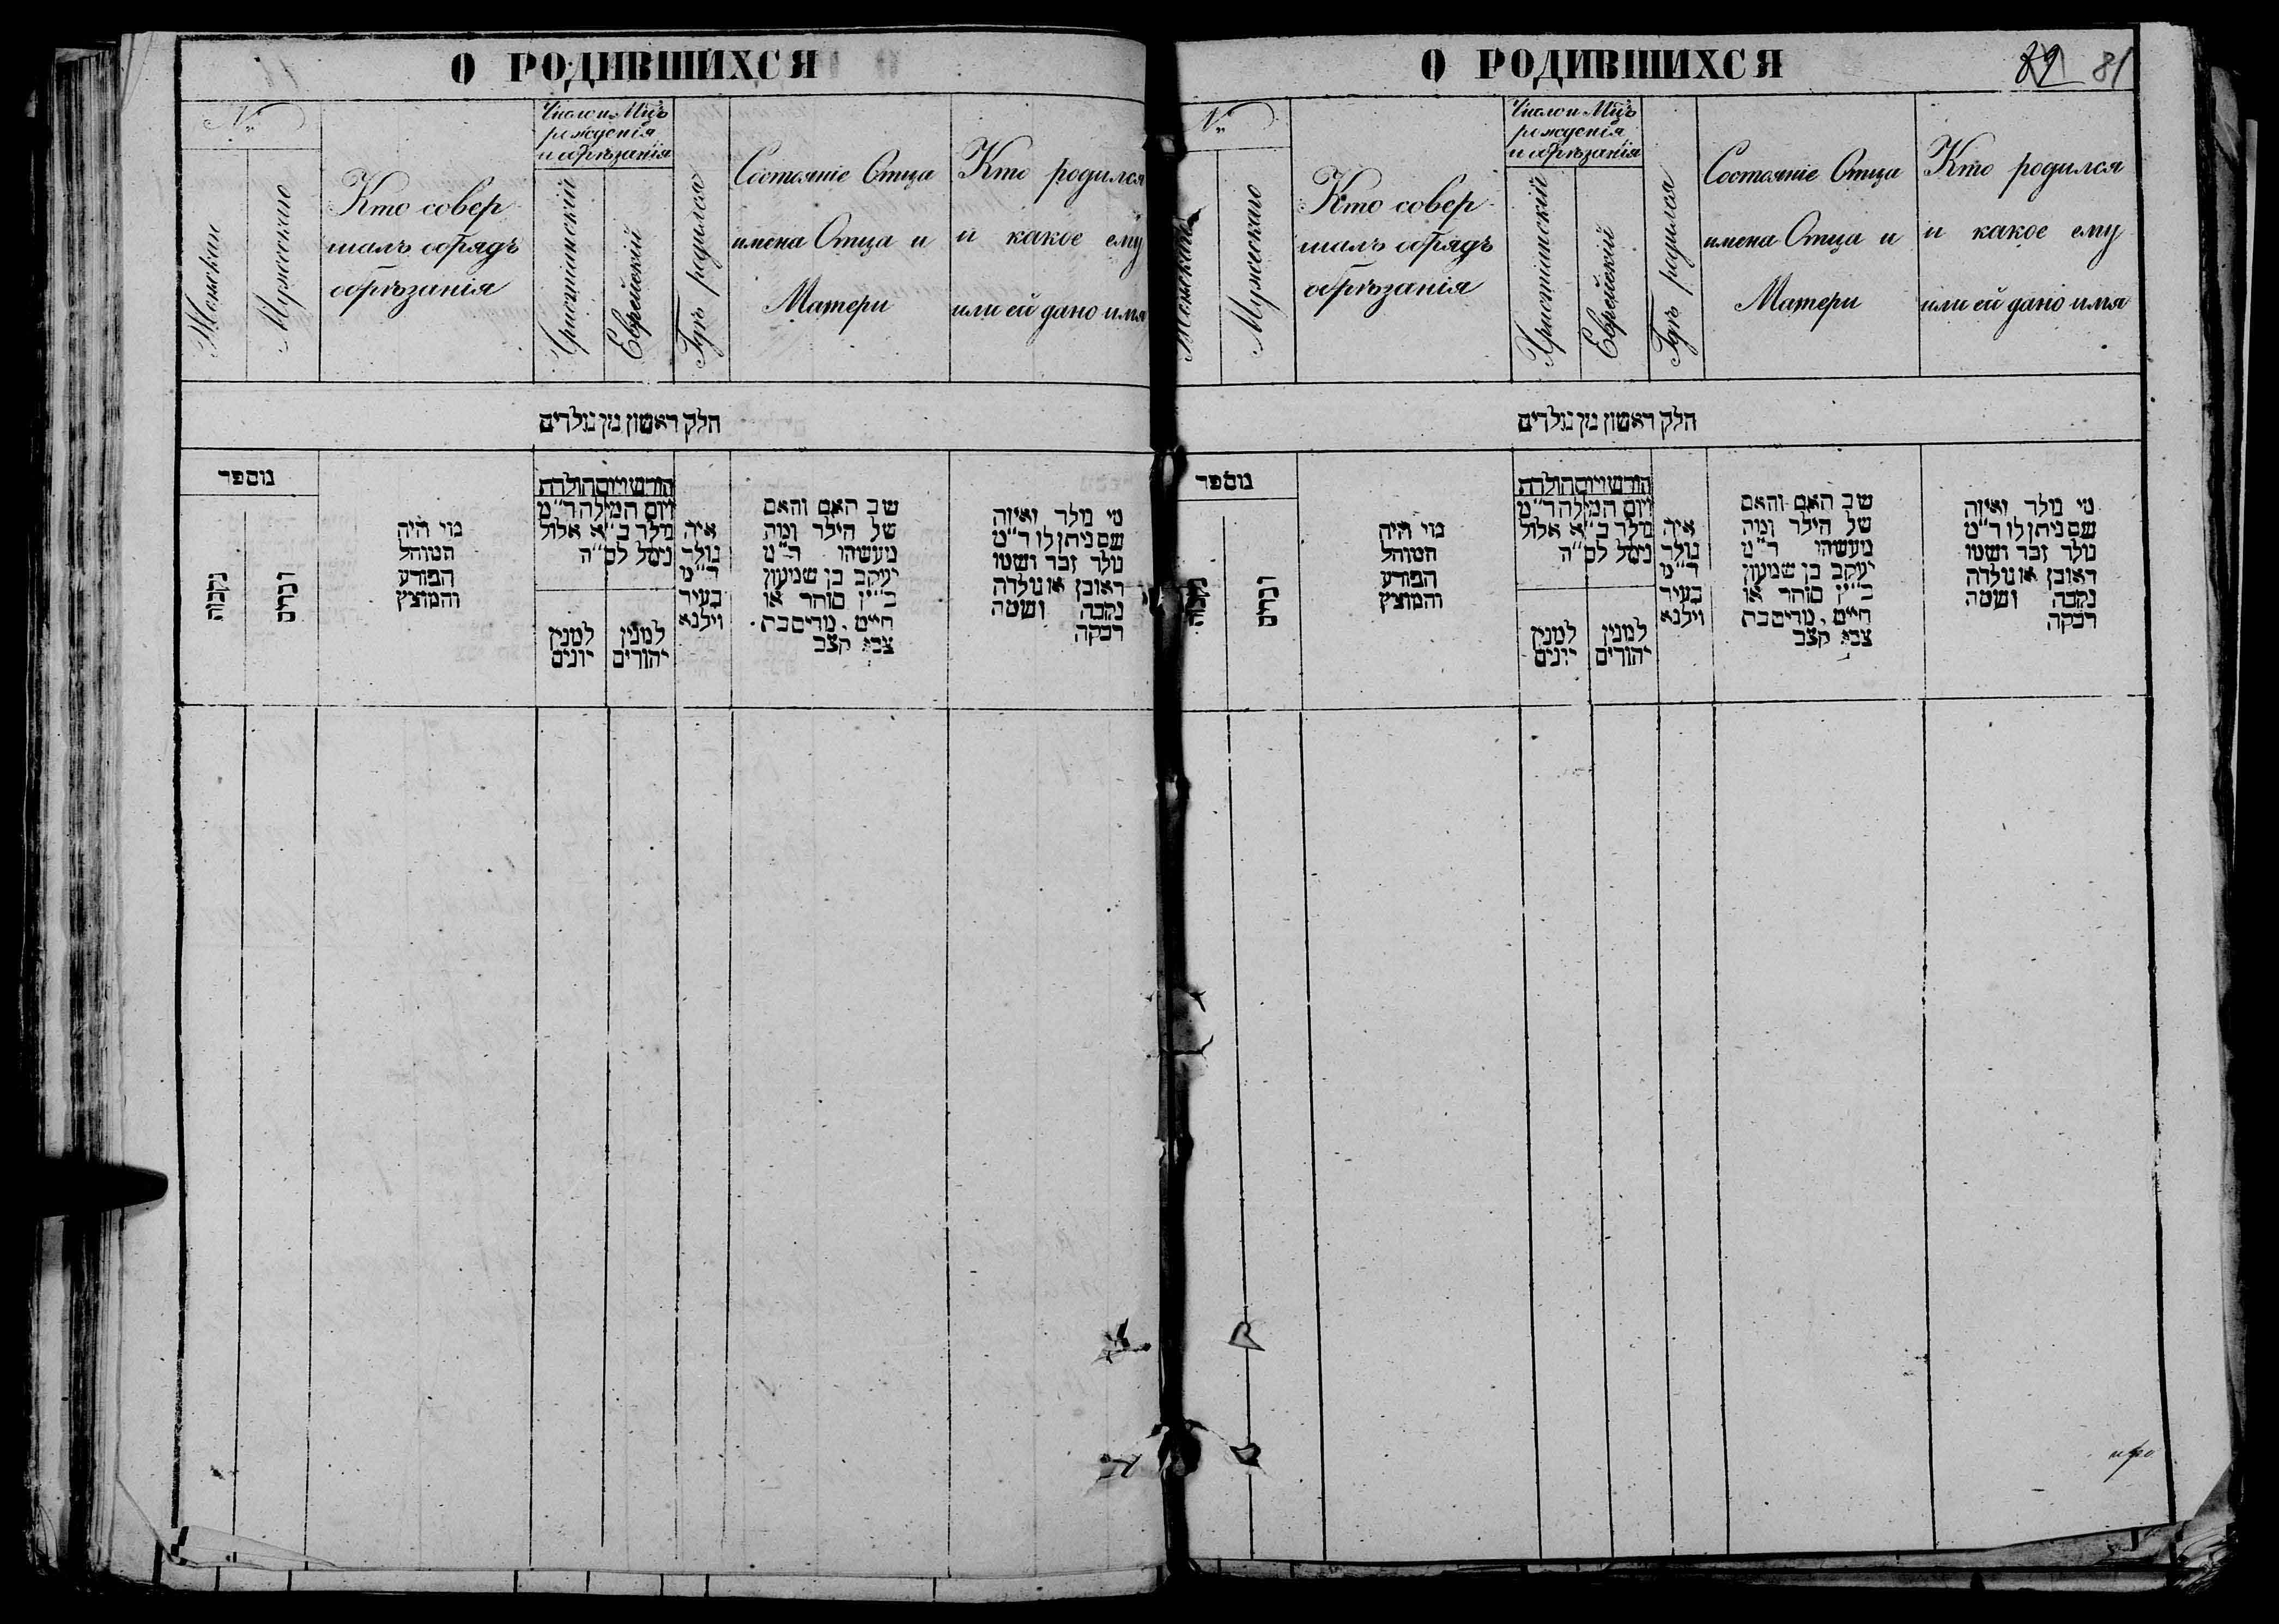 О РОДИВШИХСЯ
№
Женскаго
Мужескаго
Кто совер
шалъ обрядъ
обрѣзанія
Число и Мцъ
рожденія
и обрѣзанія
Христіанскій
Еврейскій
Гдѣ родился
Состояніе Отца
имена Отца и
Матери
Кто родился
и какое ему
или ей дано имя
חלק ראשון מן נולדים
מספר
נקבות
זכרים
מי היה
המוהל
הפורע
והמוצץ
חודש ויום הולדת
ויום המילה ד״מ
נולד כ״א אלול
ניםל לס״ה
למנין
יונים
למנין
יהודים
איה
נולד
ד״מ
בעיר
וילנא
שב האם והאם
של הילד ומה
מעשהו ד״מ
יעקב בן שמעון
כ״ץ סוחר או
חייט. מרים בת
צבי קצב
מי נולד ואיזה
שם ניתן לו ד״מ
נולד זכר ושמו
ראובן או נולדה
נקבה ושמה
רבקה
О РОДИВШИХСЯ
29 81
№
Женскаго
Мужескаго
Кто совер
шалъ обрядъ
обрѣзанія
Число и Мцъ
рожденія
и обрѣзанія
Христіанскій
Еврейскій
Гдѣ родился
Состояніе Отца
имена Отца и
Матери
Кто родился
и какое ему
или ей дано имя
חלק ראשון מן נולדים
מספר
נקבות
זכרים
מי היה
המוהל
הפורע
והמוצץ
חודש ויום הולדת
ויום המילה ד״מ
נולד כ״א אלול
ניםל לס״ה
למנין
יונים
למנין
יהודים
איה
נולד
ד״מ
בעיר
וילנא
שב האם והאם
של הילד ומה
מעשהו ד״מ
יעקב בן שמעון
כ״ץ סוחר או
חייט. מרים בת
צבי קצב
מי נולד ואיזה
שם ניתן לו ד״מ
נולד זכר ושמו
ראובן או נולדה
נקבה ושמה
רבקה